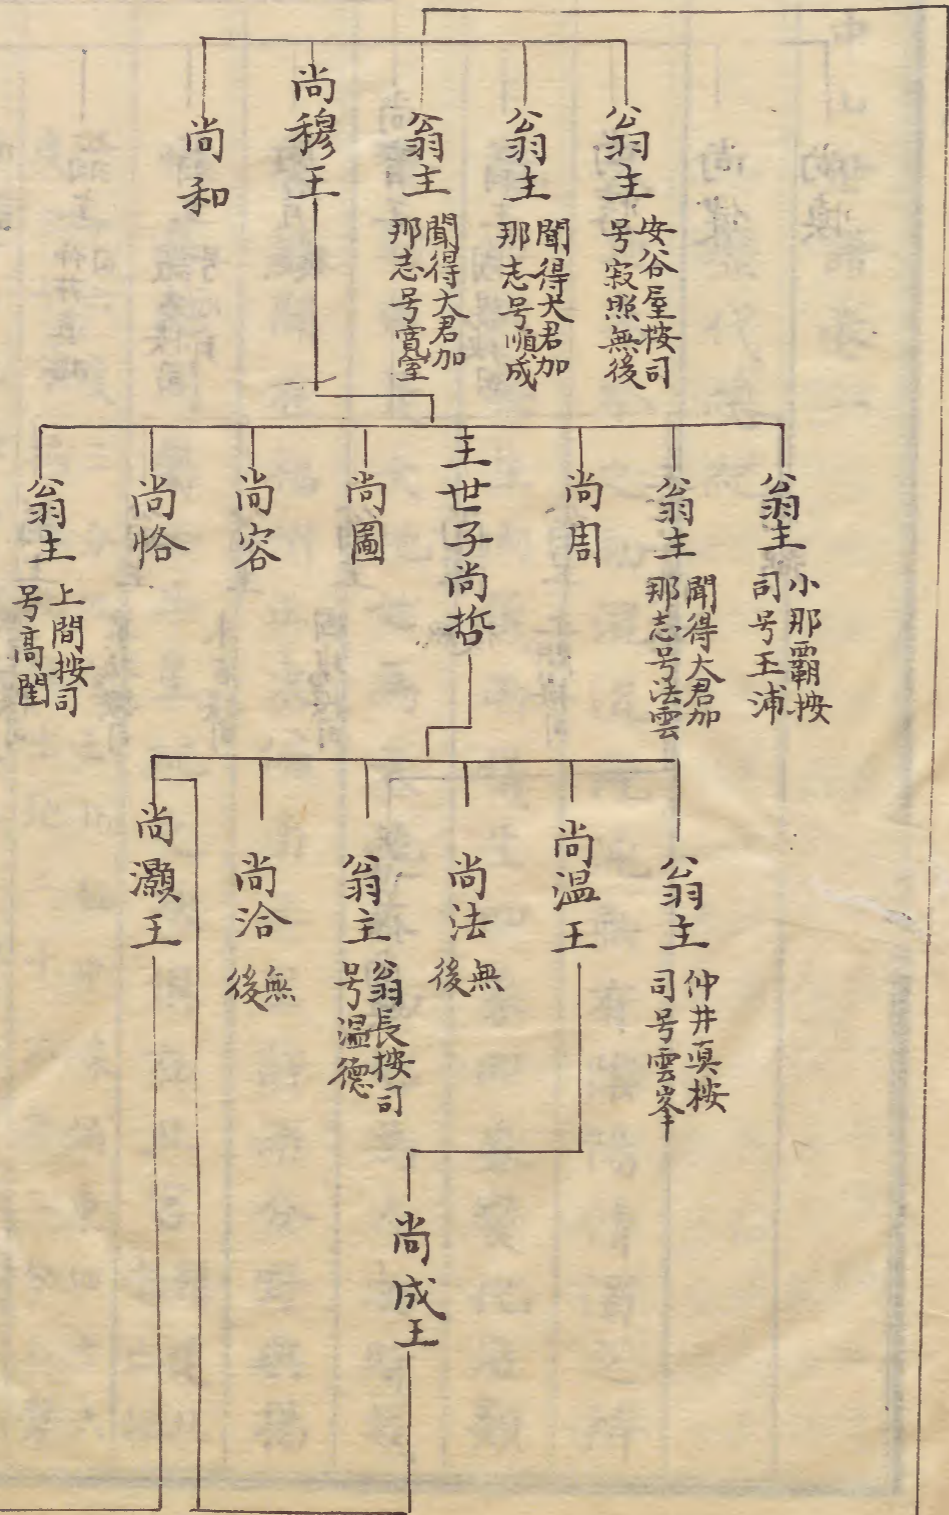 翁主
安谷屋按司
号寂照無後
翁主
聞得大君加
那志号順成
翁主
聞得大君加
那志号寛室
尚穆王
尚和
翁主
小那覇按
司号玉浦
翁主
聞得大君加
那志号法雲
尚周
王世子尚哲
尚圖
尚容
尚恪
翁主
上間按司
号高閨
翁主
仲井真按
司号雲峯
尚温王
尚法
無
後
翁主
翁長按司
号温德
尚洽
無
後
尚灝王
尚成王